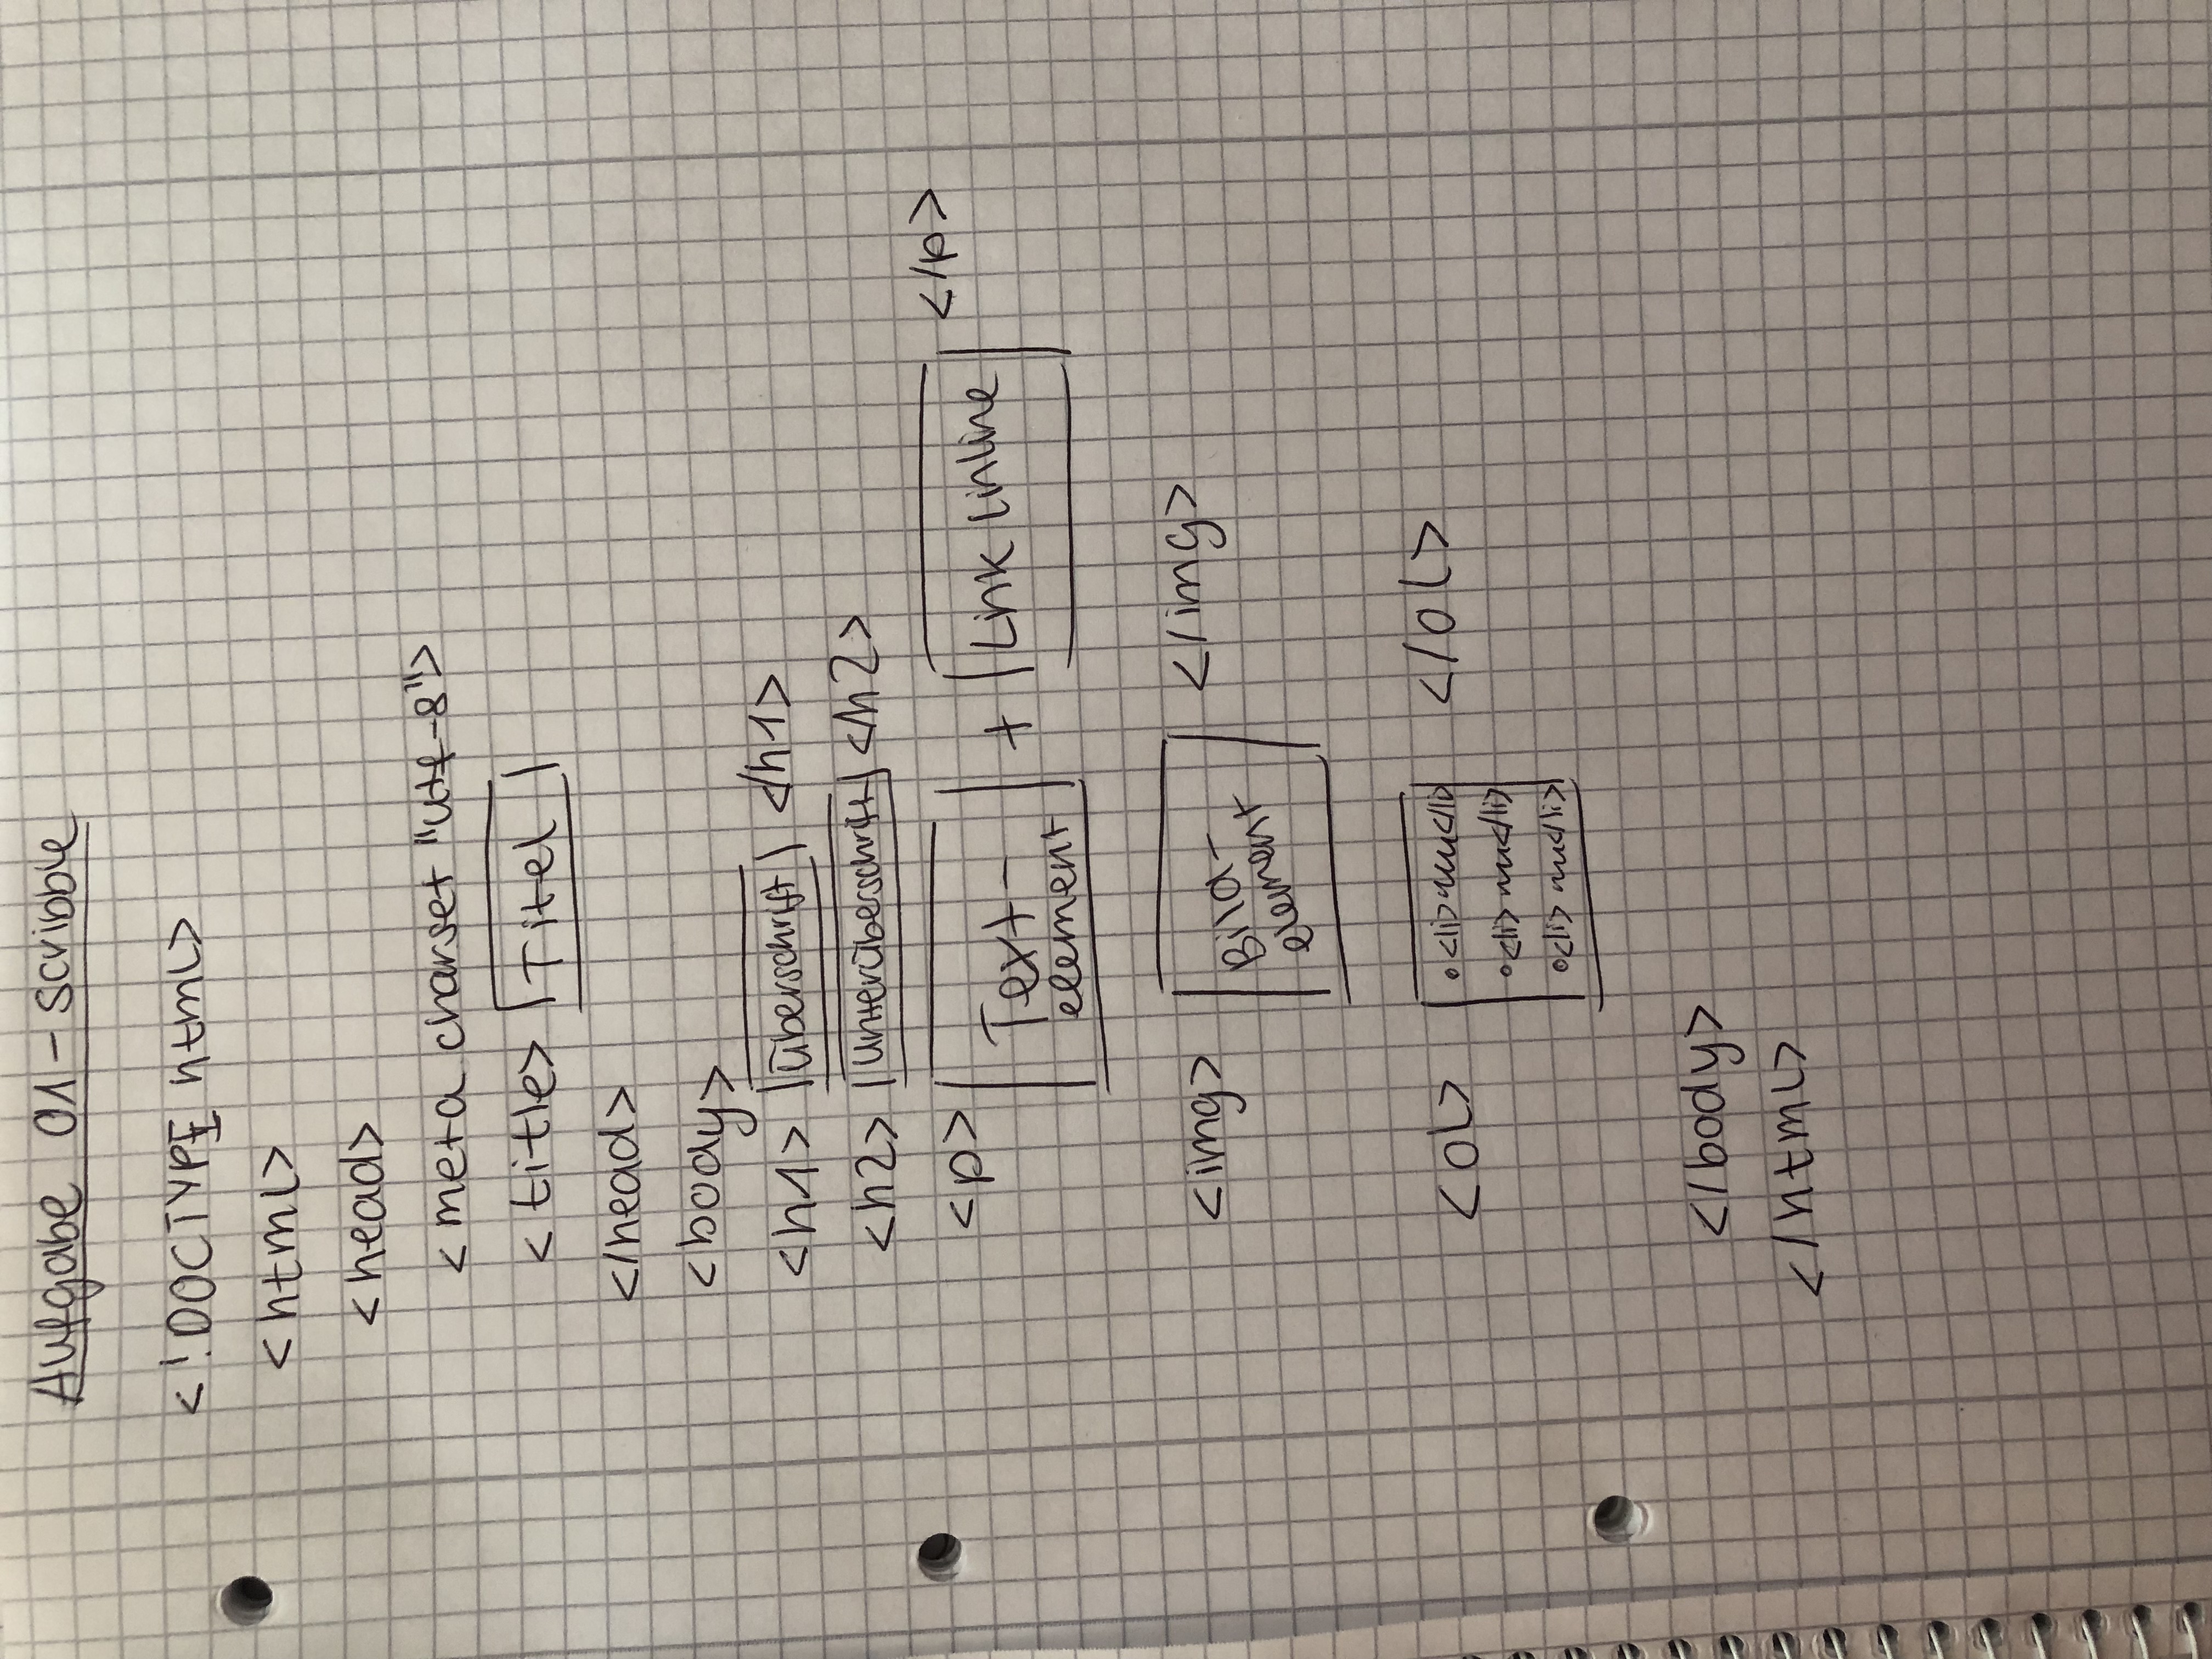 Aufgabe 01 - Scribble
<!DOCTYPE html>
<html>
<head>
<meta charset "utf-8">
<title> Titel
</head>
<body>
<h1> Überschrift </h1>
<h2> Unterüberschrift <h2>
<p> Text- + Link inline </p>
element
<img> Bild- </img>
element
<ol> <li> </li> </ol>
<li> </li>
<li> </li>
</body>
</html>